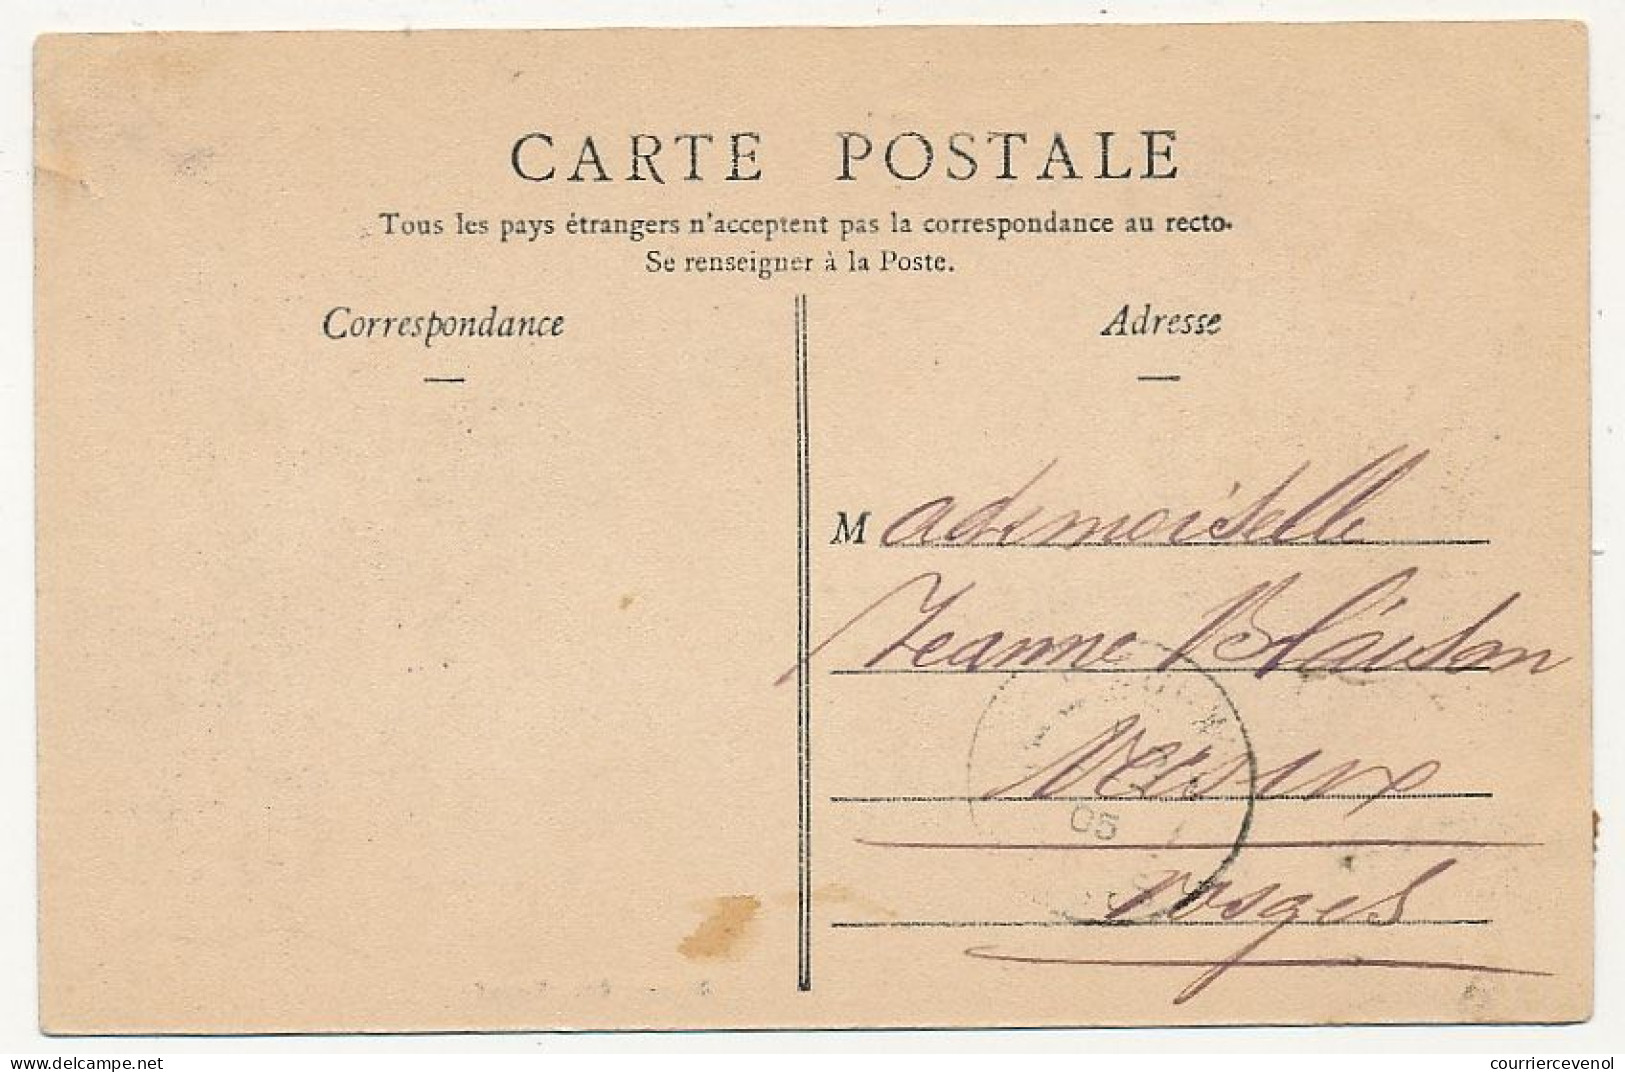 CARTE POSTALE
Tous les pays étrangers n'acceptent pas la correspondance au recto.
Se renseigner à la Poste.
Correspondance
Adresse
Mademoiselle
Jeanne
05
Vosges
www.delcampe.net
courriercevenol